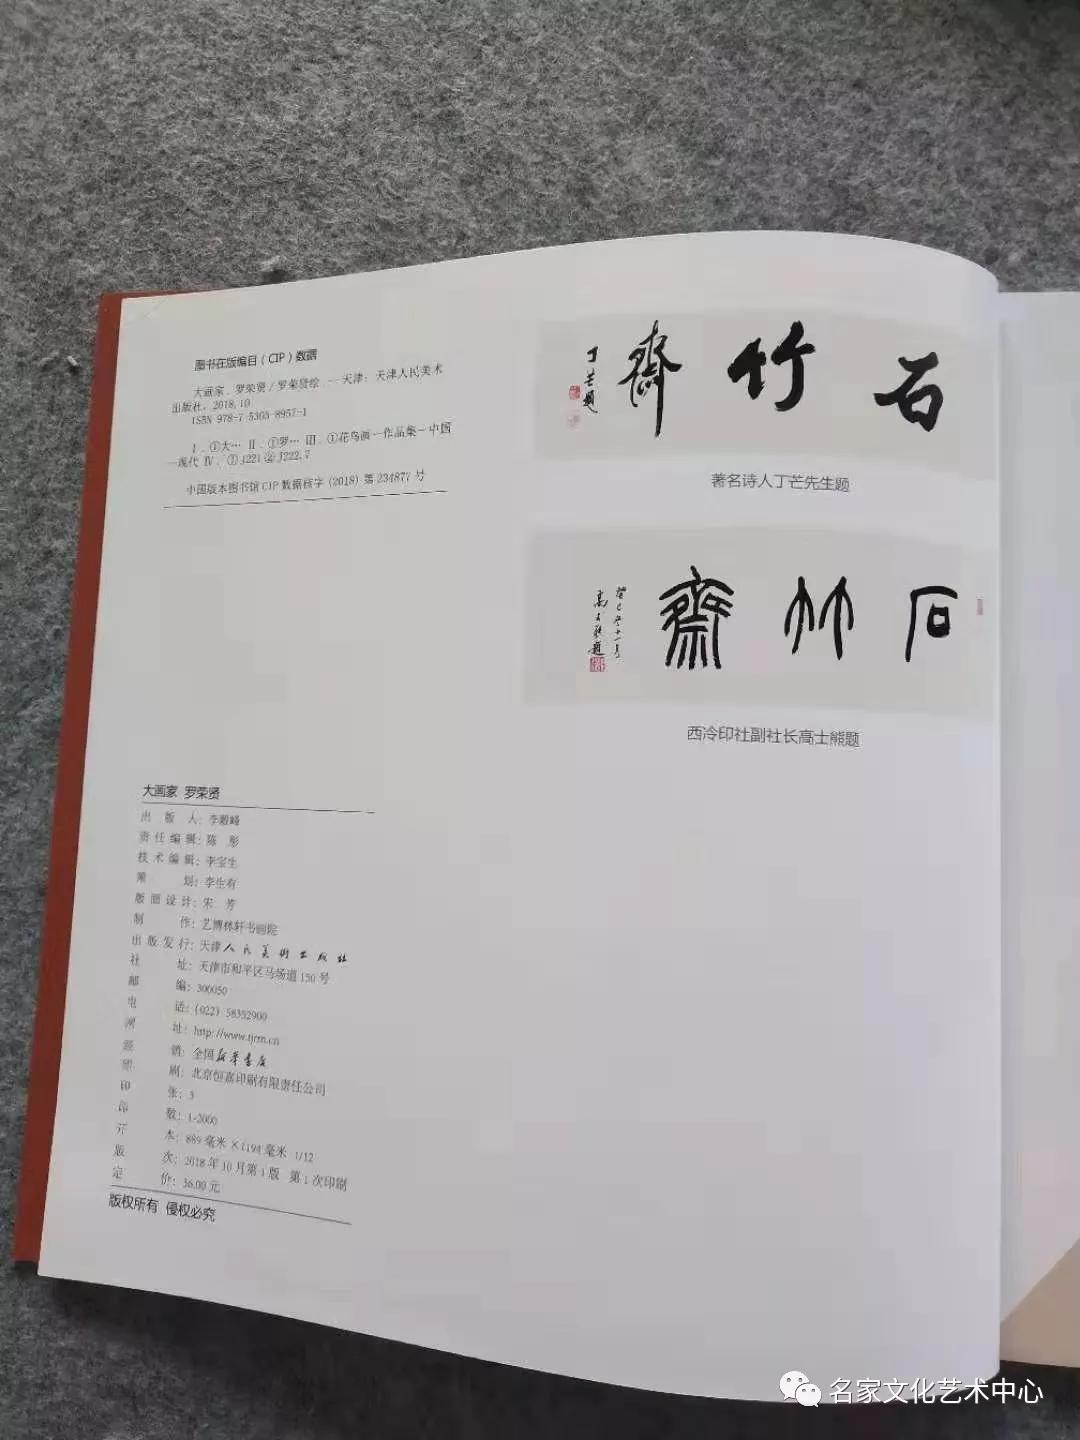 图书在版编目（CIP）数据
大画家．罗荣贤 / 罗荣贤绘．-- 天津：天津人民美术
出版社，2018.10
ISBN 978-7-5305-8957-1
Ⅰ．①大… Ⅱ．①罗… Ⅲ．①花鸟画－作品集－中国
－现代 Ⅳ．①J221②J222.7
中国版本图书馆 CIP 数据核字（2018）第 234877 号
石竹齋
丁芒题
著名诗人丁芒先生题
石竹齋
癸巳年十一月
高士熊题
西泠印社副社长高士熊题
大画家 罗荣贤
出版人：李毅峰
责任编辑：陈 彤
技术编辑：李宝生
策划：李生有
版面设计：宋 芳
制作：艺博林轩书画院
出版发行：天津人民美術出版社
社址：天津市和平区马场道 150 号
邮编：300050
电话：（022）58352900
网址：http://www.tjrm.cn
经销：全国新華書店
印刷：北京恒嘉印刷有限责任公司
印张：3
印数：1-2000
开本：889 毫米 ×1194 毫米 1/12
版次：2018 年 10 月第 1 版 第 1 次印刷
定价：36.00 元
版权所有 侵权必究
名家文化艺术中心